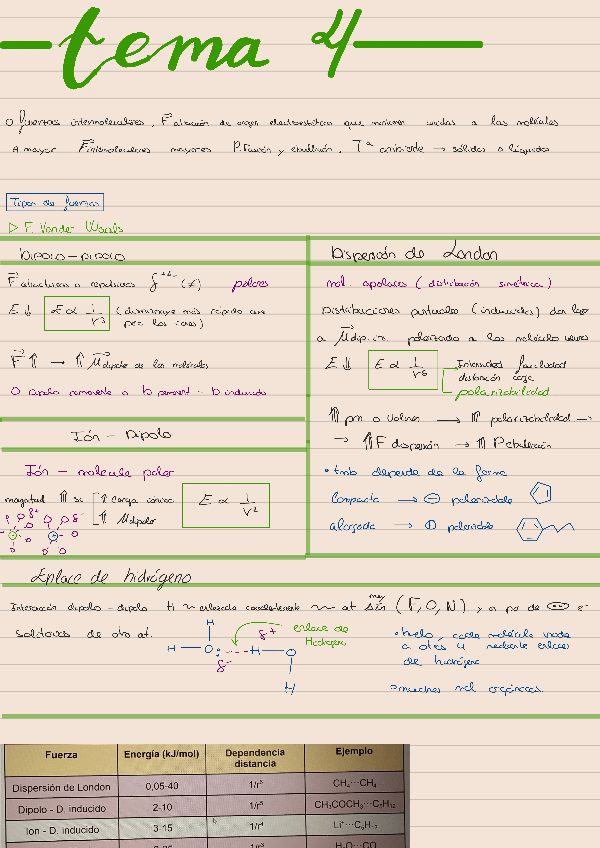 tema 4
Fuerzas intermoleculares, F atracción de origen electrostático que mantienen unidas a las moléculas
A mayor Fintermoleculares mayores P. Fusión y ebullición, Tª ambiente → sólidos o líquidos
Tipos de fuerzas
▷ F. Vander Waals
Dipolo-dipolo
F atractivas o repulsivas δ+δ- (≠) polares
E ↓ E ∝ 1/r³ (disminuye más rápido que
entre iones)
F ↑ → ↑ μ dipolo de las moléculas
O Dipolo permanente o D perment - D inducido
Ión - Dipolo
Ión - molécula polar
magnitud ⇑ si ↑ carga iónica
⇑ μ dipolar
E ∝ 1/r²
δ+ δ-
Dispersión de London
mol. apolares (distribución simétrica)
Distribuciones puntuales (inducidas) dan lugar
a μ dip.in. polarizando a las moléculas
E ↓ E ∝ 1/r⁶ Intensidad facilidad
distorsión carga
polarizabilidad
⇑ pm o volumen → ⇑ polarizabilidad →
→ ⇑ F dispersión → ⇑ P ebullición
• tmb depende de la forma
Compacta → ⊖ polarizable
alargada → ⊕ polarizable
Enlace de hidrógeno
Interacción dipolo-dipolo H ~ enlazado covalentemente ~ at muy (F, O, N), a par de e-
solitarios de otro at.
H
H — O : --- H — O
H
δ+
δ-
enlace de
Hidrógeno
• hielo, cada molécula unida
a otras 4 mediante enlaces
de hidrógeno
muchas mol orgánicas
Fuerza Energía (kJ/mol) Dependencia distancia Ejemplo
Dispersión de London 0,05-40 1/r⁶ CH₄···CH₄
Dipolo - D. inducido 2-10 1/r⁶
Ion - D. inducido 3-15 1/r⁴
1/r³ H₂O···CO